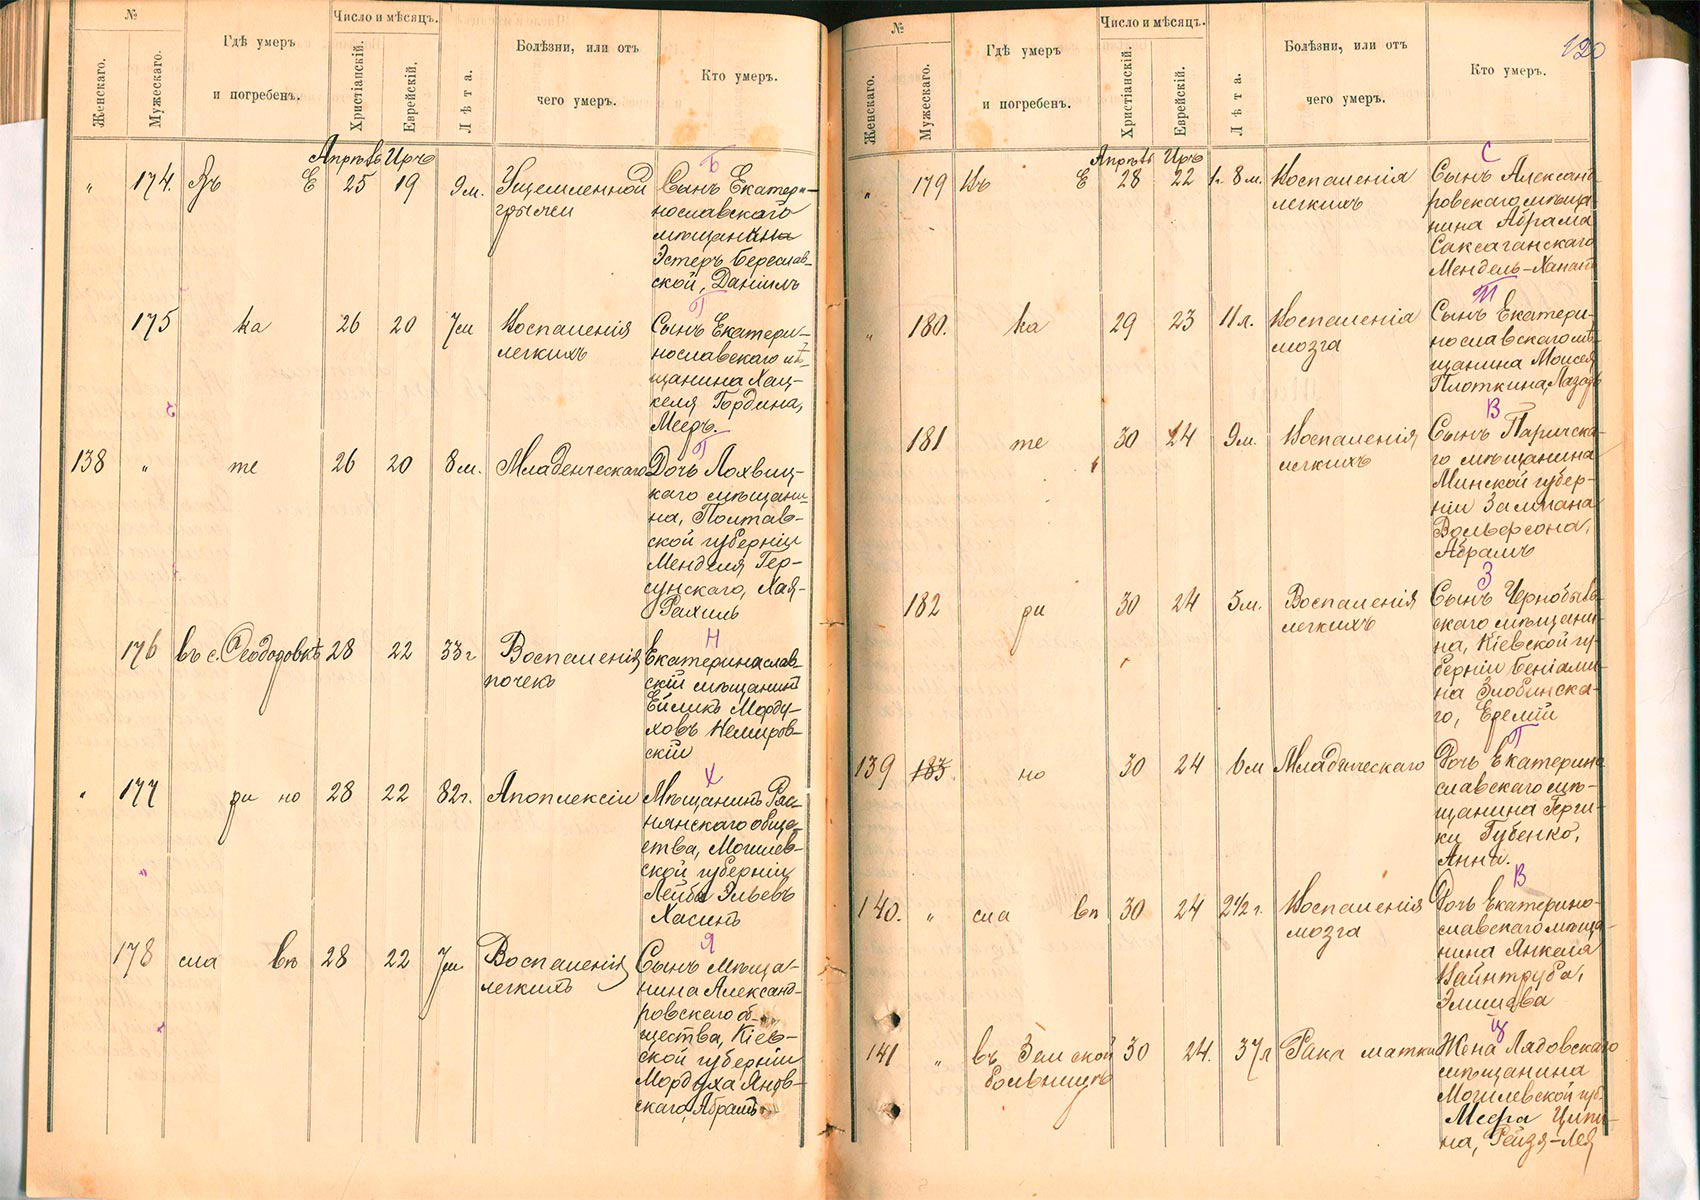 №
Число и мѣсяцъ.
Гдѣ умеръ
и погребенъ.
Болѣзни, или отъ
чего умеръ.
Кто умеръ.
Женскаго.
Мужескаго.
Христіанскій.
Еврейскій.
Лѣта.
Апрѣль Иръ
Б
" 174. Въ Е 25 19 9 м. Ущемленной
грыжи
Сынъ Екатери-
нославскаго
мѣщанина
Эстеръ Береслав-
ской, Даніилъ
Г
175 ка 26 20 7 м Воспаленія
легкихъ
Сынъ Екатери-
нославскаго мѣ-
щанина Хац-
келя Гордина,
Мееръ.
Г
138 " те 26 20 8 м. Младенческаго
Дочь Лохвиц-
каго мѣщани-
на, Полтав-
ской губерніи
Менделя Гер-
сунскаго, Хая-
Рахиль
Н
176 въ с. Ѳеодоровкѣ 28 22 33 г Воспаленія
почекъ
Екатеринослав-
скій мѣщанинъ
Ейликъ Морду-
ховъ Немиров-
скій
Х
" 177 ри но 28 22 82 г. Апоплексіи
Мѣщанинъ Ряс-
нянскаго обще-
ства, Могилев-
ской губерніи
Лейба Эльевъ
Хасинъ
Я
178 сла въ 28 22 7 м Воспаленія
легкихъ
Сынъ мѣща-
нина Александ-
ровскаго об-
щества, Кіев-
ской губерніи
Мордуха Янов-
скаго, Абрамъ
120
№
Число и мѣсяцъ.
Гдѣ умеръ
и погребенъ.
Болѣзни, или отъ
чего умеръ.
Кто умеръ.
Женскаго.
Мужескаго.
Христіанскій.
Еврейскій.
Лѣта.
Апрѣль Иръ
С
" 179 Въ Е 28 22 1 г. 8 м. Воспаленія
легкихъ
Сынъ Александ-
ровскаго мѣща-
нина Абрама
Саксаганскаго
Мендель-Ханан
П
" 180. ка 29 23 11 л. Воспаленія
мозга
Сынъ Екатери-
нославскаго мѣ-
щанина Моисея
Плоткина, Лазарь
В
181 те 30 24 9 м. Воспаленія
легкихъ
Сынъ Паричска-
го мѣщанина
Минской губер-
ніи Залмана
Вольфсона,
Абрамъ
З
182 ри 30 24 5 м. Воспаленія
легкихъ
Сынъ Чернобыль-
скаго мѣщани-
на, Кіевской гу-
берніи Беніами-
на Злобинска-
го, Еремій
Г
139 183. но 30 24 6 м Младенческаго
Дочь Екатерино
славскаго мѣ-
щанина Герш-
ки Губенко,
Анна.
В
140. " сла въ 30 24 2 1/2 г. Воспаленія
мозга
Дочь Екатерино-
славскаго мѣща-
нина Янкеля
Вайнтруба,
Элишева
Ц
141 " въ Земской 30 24. 37 л Рака матки
больницѣ
Жена Лядовскаго
мѣщанина
Могилевской губ.
Меера Ципи-
на, Рейзя-Лея